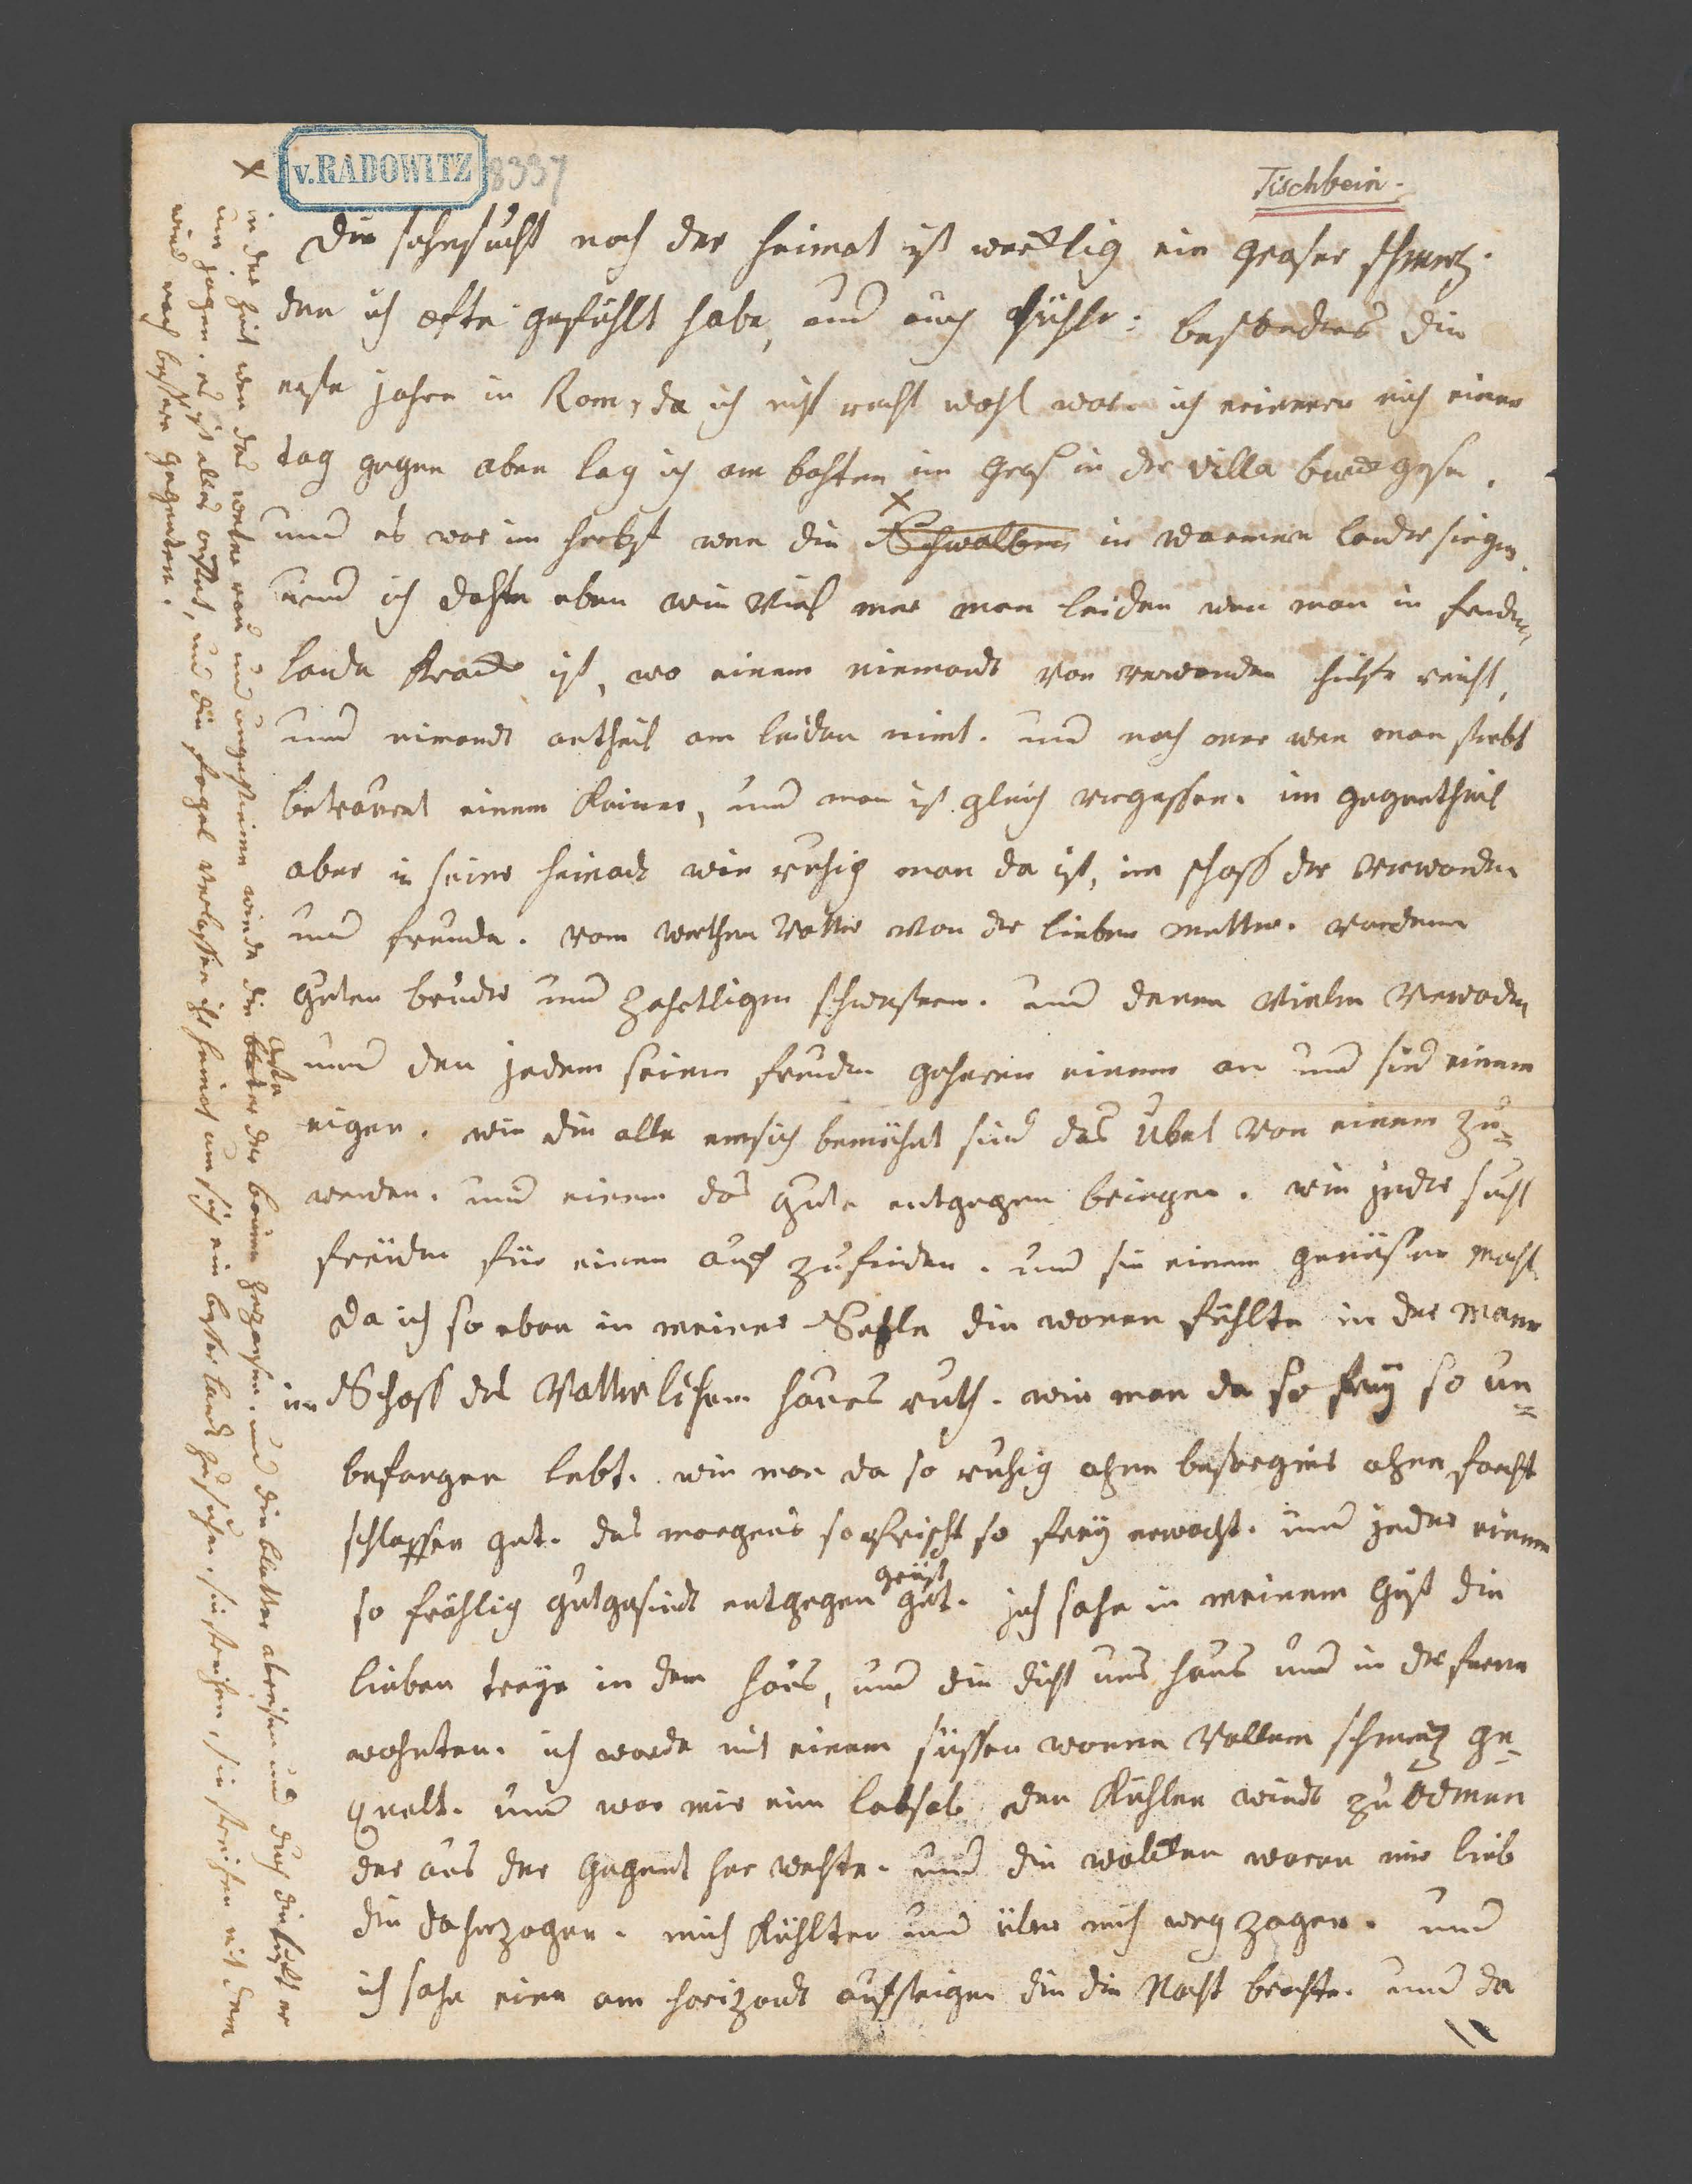 v. RADOWITZ 8337
Tischbein.
Die sehnsucht nach der heimat ist wircklig ein groser schmertz.
den ich efte gefühlt habe, und auch fühle: besonders die
erste jahre in Rom, da ich nicht recht wohl war. ich erinnere mich eines
tag gegen aben lag ich am bohten im Gras in der villa burgese.
und es war im herbst wen die Schwalben in warmen lender
und ich dahte eben wie viel mer man leiden wen man in
lande kranck ist, wo einem niemandt von verwanden hülfe reicht,
und nimandt antheil am leiden nimt. und noch mer wen man stirbt
betrauert einem keiner, und man ist gleich vergessen. im gegentheil
aber in seiner heimadt wie ruhig man da ist, im schoss der verwanden
und freunde. vom werthen vatter von der lieben mutter. von dem
guten bruder und zahrtligen schwestern. und denen vielen verwaden
und den jedem seinen freunden gehören einem an und sind einem
eigen. wie die alle emsich bemühet sind das übel von einem zu=
wenden. und einem das gute entgegen bringen. wie jeder sucht
freuden für einen auf zufinden. und sie einem genüssen macht
Da ich so eben in meiner Sehle die wonen fühlte in der man
im Schoss des vatterlichen hauses ruth. wie man da so frey so un=
befangen lebt. wie man da so ruhig ohne besorgnis ohne forcht
schlaffen get. des morgens so frisch so frey erwacht. und jeder einem
so fröhlig gutgesindt entgegen get. ich sahe in meinem Gist die
lieben treye in dem haus, und die dicht ums haus und in der ferne
wohnten. ich warde mit einem süssen wonne vollem schmertz ge=
quelt. und war mir eine labsal den kühlen windt zu odmen
der aus der gegent her wehte. und die wolcken waren mir lieb
die daherzogen. mich kühlten und über mich weg zogen. und
ich sahe eine am horizondt aufsteigen die die Nacht brachte. und da
x in der zeit wen das weter und ungestümen winde die äste der beume zerzausen. und die bletter abreisen und durch die luft
um jagen. es ist alles, und die fogel verlassen ihr heimat um sich ein bester land zu suchen. sie streichen mit dem
wind nach bessern gegenden.